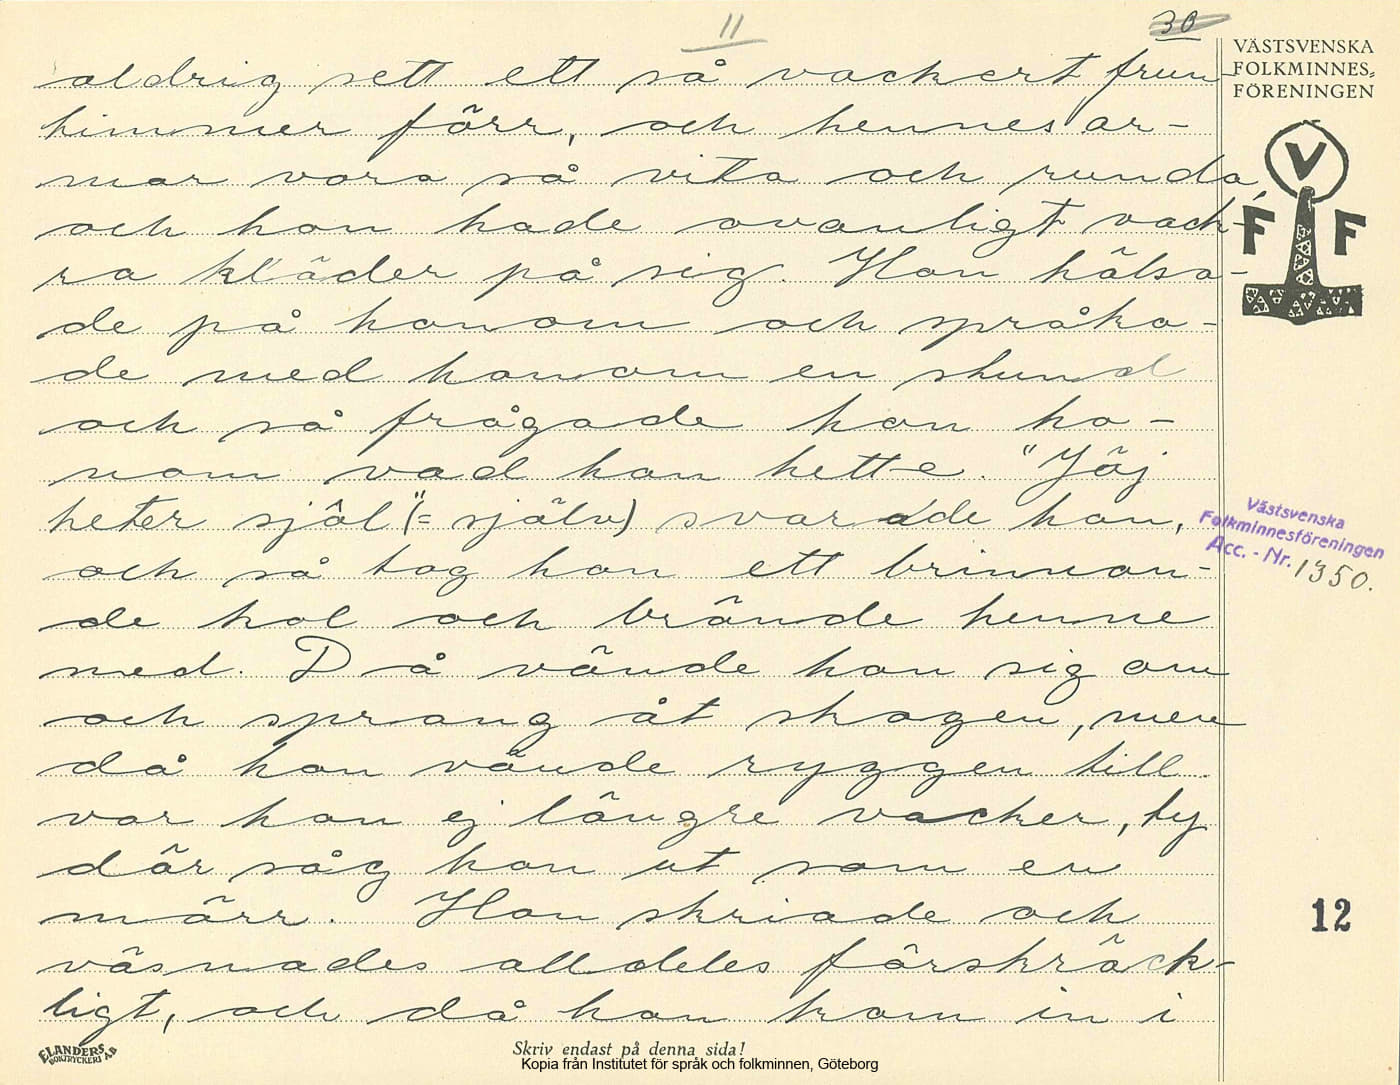 11
30
aldrig sett ett så vackert frun-
timmer förr, och hennes ar-
mar vora så vita och runda,
och hon hade ovanligt vack-
ra kläder på sig. Hon hälsa-
de på honom och språka-
de med honom en stund
och så frågade hon ho-
nom vad han hette. "Jäj
heter själ" (= själv) svarade han,
och så tog han ett brinnan-
de kol och brände henne
med. Då vände hon sig om
och sprang åt skogen, men
då hon vände ryggen till
var hon ej längre vacker, ty
där såg hon ut som en
märr. Hon skriade och
väsnades alldeles förskräck-
ligt, och då hon kom in i
VÄSTSVENSKA
FOLKMINNES-
FÖRENINGEN
V
F F
Västsvenska
Folkminnesföreningen
Acc. - Nr. 1350.
12
ELANDERS
BOKTRYCKERI A.B
Skriv endast på denna sida!
Kopia från Institutet för språk och folkminnen, Göteborg